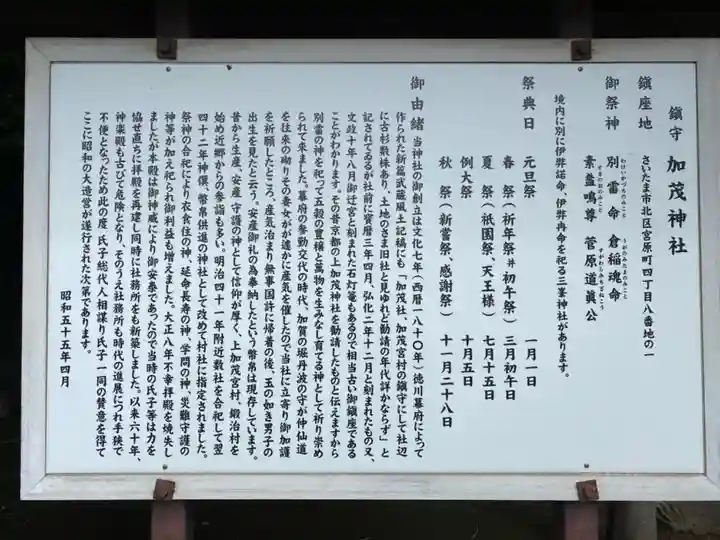 鎮守 加茂神社
鎮座地 さいたま市北区宮原町四丁目八番地の一
御祭神 別雷命 倉稲魂命
わけいかづちのみこと うがのみたまのみこと
素盞鳴尊 菅原道真公
すさのおのみこと すがわらみちざねこう
境内に別に伊弉諾命、伊弉冉命を祀る三峯神社があります。
祭典日 元旦祭 一月一日
春祭(祈年祭並初午祭)三月初午日
夏祭(祇園祭、天王様)七月十五日
例大祭 十月五日
秋祭(新嘗祭、感謝祭)十一月二十八日
御由緒 当神社の御創立は文化七年(西暦一八十〇年)徳川幕府によって
作られた新篇武蔵風土記稿にも「加茂社、加茂宮村の鎮守にして社辺
に古杉数株あり、土地のさま旧社と見ゆれど勧請の年代詳かならず」と
記されてゐるが社前に宝暦三年四月、弘化二年十二月と刻まれたもの又、
文政十年八月御迁宮と刻まれた石灯篭もあるので相当古い御鎮座である
ことがわかります。その昔京都の上加茂神社を勧請したものと伝えますから
別雷の神を祀って五穀の豊穣と萬物を生みなし育てる神として祈り崇め
られて来ました。幕府の参勤交代の時代、加賀の堀丹波の守が仲仙道
を往来の砌りその妻女がが遽かに産気を催したので当社に立寄り御加護
を祈願したところ、産気治まり無事国許に帰着の後、玉の如き男子の
出生を見たと云う。安産御礼の為奉納したという幣帛は現存しています。
昔から生産、安産、守護の神として信仰が厚く、上加茂宮村、鍛冶村を
始め近郷からの参詣も多い。明治四十一年附近数社を合祀して翌
四十二年神饌、幣帛供進の神社として改めて村社に指定されました。
祭神の合祀により衣食住の神、延命長寿の神、学問の神、災難守護の
神等が加え祀られ御利益も増えました。大正八年不幸拝殿を焼失し
ましたが本殿は御神威により御安泰であったので当時の氏子等は力を
協せ直ちに拝殿を再建し同時に社務所をも新築しました。以来六十年、
神楽殿も古びて危険となり、そのうえ社務所も時代の進展につれ手狭で
不便となったため此の度氏子総代人相謀り氏子一同の賛意を得て
ここに昭和の大造営が遂行された次第であります。
昭和五十五年四月